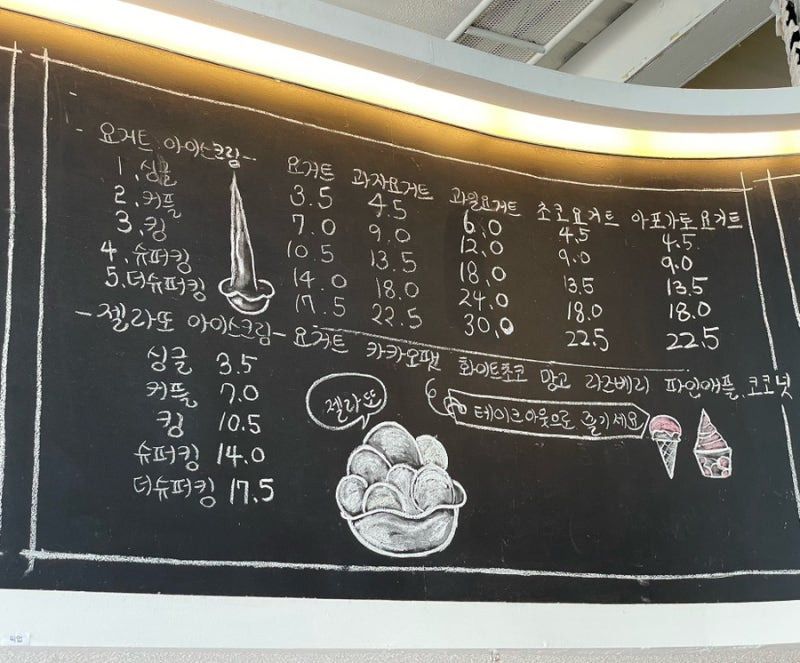 - 요거트 아이스크림 -
요거트 과자요거트 과일요거트 초코요거트 아포가토요거트
1. 싱글 3.5 4.5 6.0 4.5 4.5
2. 커플 7.0 9.0 12.0 9.0 9.0
3. 킹 10.5 13.5 18.0 13.5 13.5
4. 슈퍼킹 14.0 18.0 24.0 18.0 18.0
5. 더슈퍼킹 17.5 22.5 30.0 22.5 22.5
- 젤라또 아이스크림 - 요거트 카카오팻 화이트초코 망고 라즈베리 파인애플. 코코넛
싱글 3.5
커플 7.0
킹 10.5
슈퍼킹 14.0
더슈퍼킹 17.5
젤라또
테이크아웃으로 즐기세요
픽업